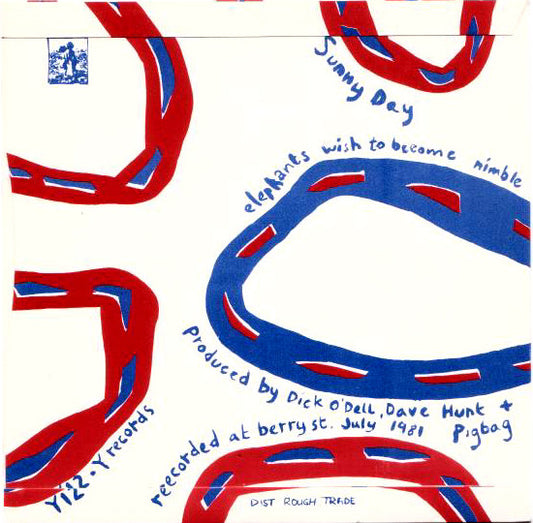 Sunny Day
elephants wish to become nimble
produced by Dick O'Dell, Dave Hunt +
Pigbag
reecorded at berry st. July 1981
Y 12 2 · Y records
DIST ROUGH TRADE